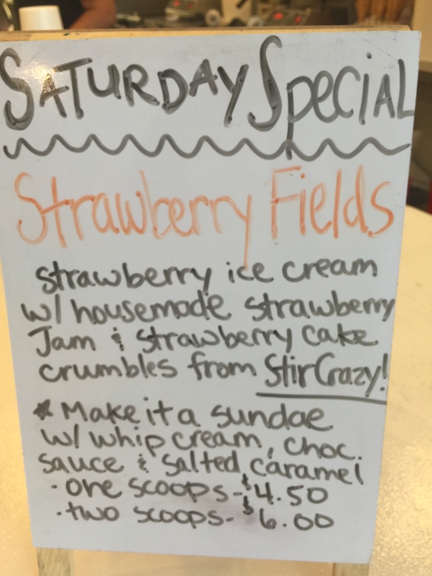 SATURDAY Special
Strawberry Fields
strawberry ice cream
w/ housemade strawberry
Jam & strawberry cake
crumbles from StirCrazy!
* Make it a sundae
w/ whip cream, choc.
sauce & salted caramel
- one scoops - $4.50
- two scoops - $6.00